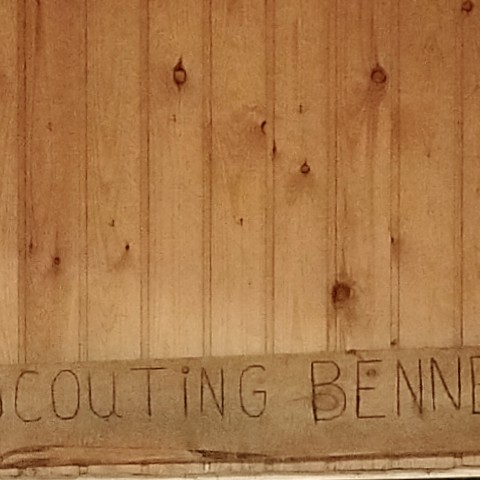 SCOUTiNG BENNE